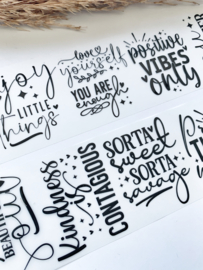 joy
LITTLE
things
love
yourself
YOU ARE
enough
positive
VIBES
only
BEAUTIFUL
Kindness
is
CONTAGIOUS
SORTA
sweet
SORTA
savage